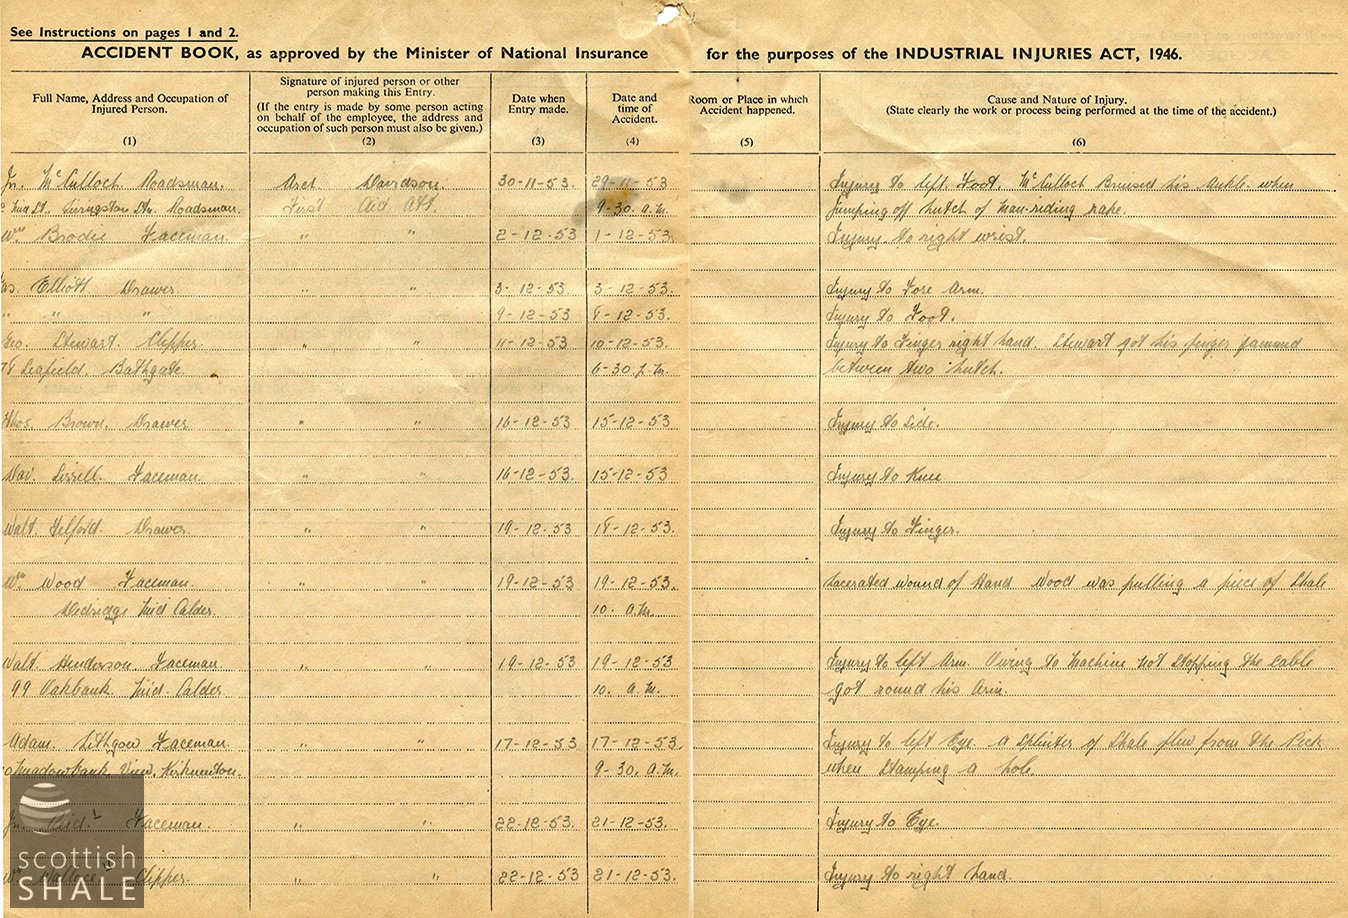 See Instructions on pages 1 and 2.
ACCIDENT BOOK, as approved by the Minister of National Insurance for the purposes of the INDUSTRIAL INJURIES ACT, 1946.
Full Name, Address and Occupation of Injured Person. (1)
Signature of injured person or other person making this Entry. (If the entry is made by some person acting on behalf of the employee, the address and occupation of such person must also be given.) (2)
Date when Entry made. (3)
Date and time of Accident. (4)
Room or Place in which Accident happened. (5)
Cause and Nature of Injury. (State clearly the work or process being performed at the time of the accident.) (6)
Jn. McCulloch Roadsman. Arch. Davidson. 30-11-53. 29-11-53 Injury to left Foot. McCulloch Brused his Ankle when
Livingston Stn. Roadsman. First Aid Att. 9-30. a.m. Jumping off hutch of man-riding rake.
Wm Brodie Faceman " " 2-12-53 1-12-53. Injury to right wrist.
Elliott Drawer. " " 3-12-53 3-12-53. Injury to Fore Arm.
" " " 9-12-53 8-12-53. Injury to Foot.
Geo. Stewart. Clipper. " " 11-12-53 10-12-53. Injury to Finger right hand. Stewart got his finger jammed
Seafield. Bathgate. 6-30. p.m. between two hutch.
Thos. Brown. Drawer " " 16-12-53 15-12-53 Injury to Side.
Dav. Faceman. " " 16-12-53. 15-12-53 Injury to Knee
Walt. Telford. Drawer " " 19-12-53 18-12-53. Injury to Finger.
Wm Wood Faceman. " " 19-12-53 19-12-53. Lacerated wound of Hand Wood was pulling a piece of Shale
Dedridge Mid Calder. 10. a.m.
Walt. Henderson Faceman. " " 19-12-53 19-12-53. Injury to left Arm. Owing to machine not stopping the cable
99 Oakbank Mid. Calder 10. a.m. got round his Arm.
Adam. Lithgow Faceman. " " 17-12-53 17-12-53. Injury to left Eye. A Splinter of Shale flew from the Pick
Meadowbank View, Kirknewton. 9-30. a.m. when Stamping a hole.
Jn. Reid. L Faceman. " " 22-12-53. 21-12-53. Injury to Eye.
Wm Wallace Clipper. " " 22-12-53 21-12-53. Injury to right hand.
scottish
SHALE